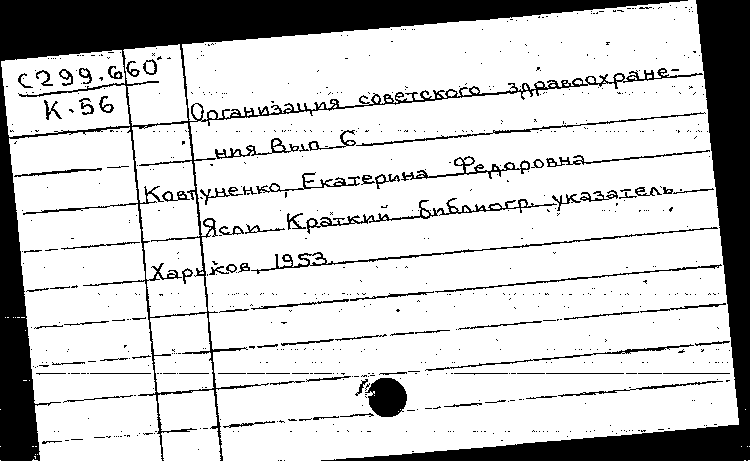 С299.660
К.56
Организация советского здравоохране-
ния Вып. 6
Ковтуненко, Екатерина Федоровна
Ясли Краткий библиогр. указатель.
Харьков, 1953.